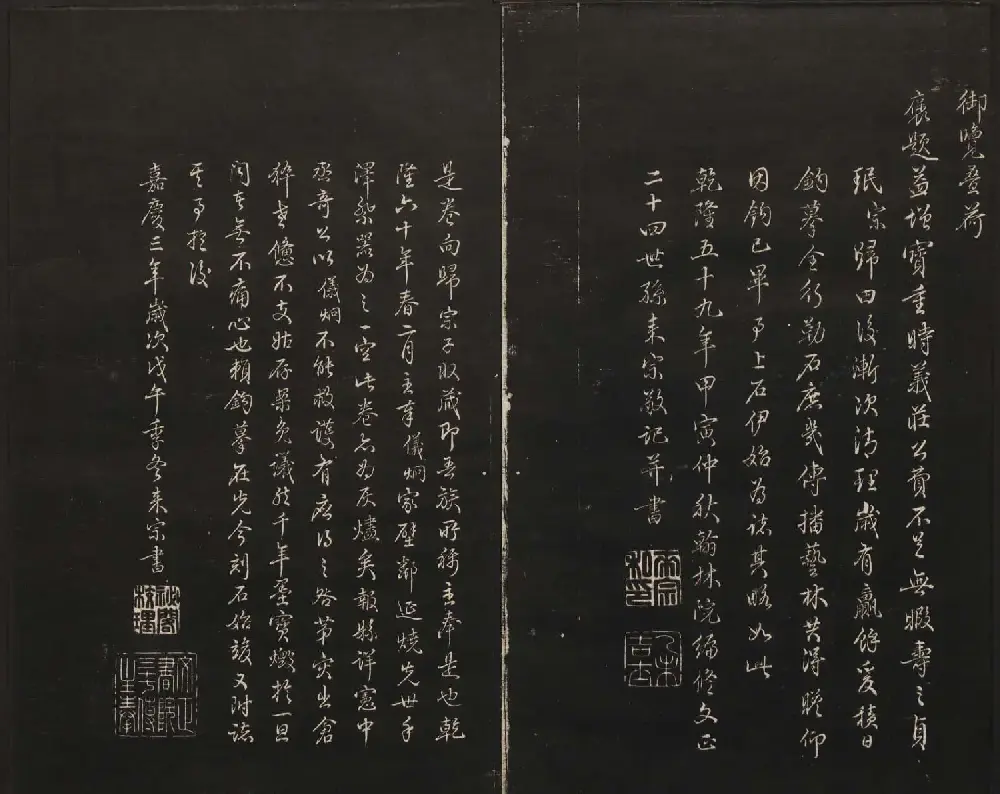 御览叠荷
褒題益增寶重時義莊公費不足無暇壽之貞
珉宗歸田後漸次清理歲有贏餘爰積日
鈎摹令行勒石庶幾傳播藝林共得瞻仰
因鈎已畢事上石伊始為誌其略如此
乾隆五十九年甲寅仲秋翰林院編修文正
二十四世孫来宗敬記并書
是卷向歸宗子收藏即吾族所稱主奉是也乾
隆六十年春二月主奉儀炯家壁鄰延燒先世手
澤祭器為之一空此卷亦為灰燼矣報縣詳憲中
丞奇公以儀炯不能救護有應得之咎第突出倉
猝勢憊不支姑存案免議然千年墨寶燬於一旦
聞者無不痛心也賴鈎摹在先今刻石始竣又附誌
其事於後
嘉慶三年歲次戊午季冬来宗書
文正
書院
三十傳
主奉